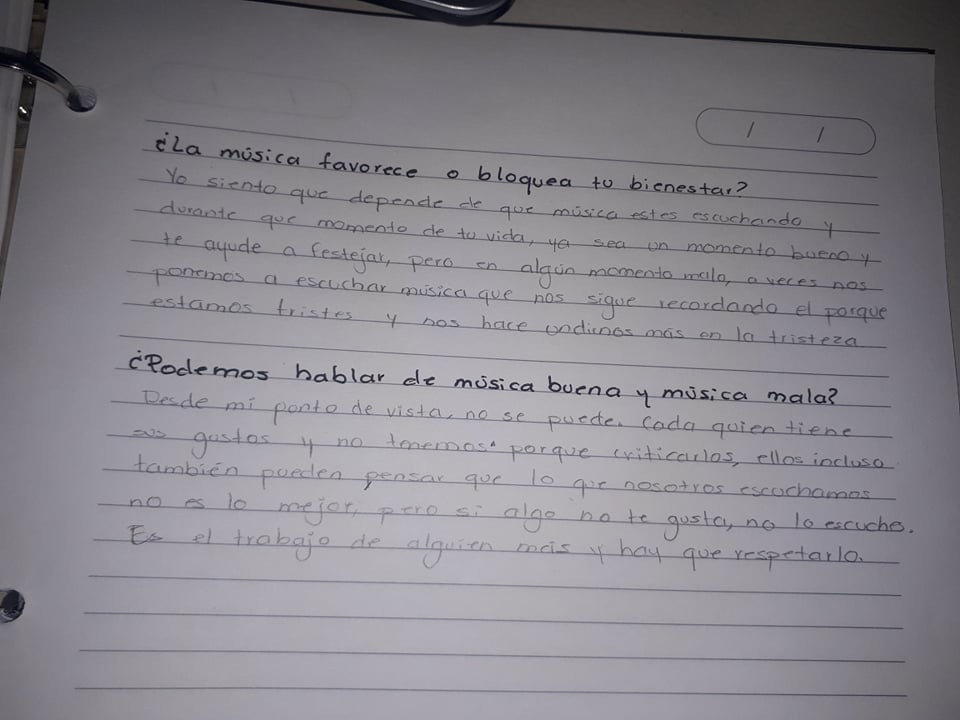 / /
¿La música favorece o bloquea tu bienestar?
Yo siento que depende de que música estes escuchando y
durante que momento de tu vida, ya sea un momento bueno y
te ayude a festejar, pero en algún momento malo, a veces nos
ponemos a escuchar música que nos sigue recordando el porque
estamos tristes y nos hace undirnos más en la tristeza
¿Podemos hablar de música buena y música mala?
Desde mi punto de vista, no se puede. Cada quien tiene
sus gustos y no tenemos porque criticarlos, ellos incluso
también pueden pensar que lo que nosotros escuchamos
no es lo mejor, pero si algo no te gusta, no lo escuche.
Es el trabajo de alguien más y hay que respetarlo.